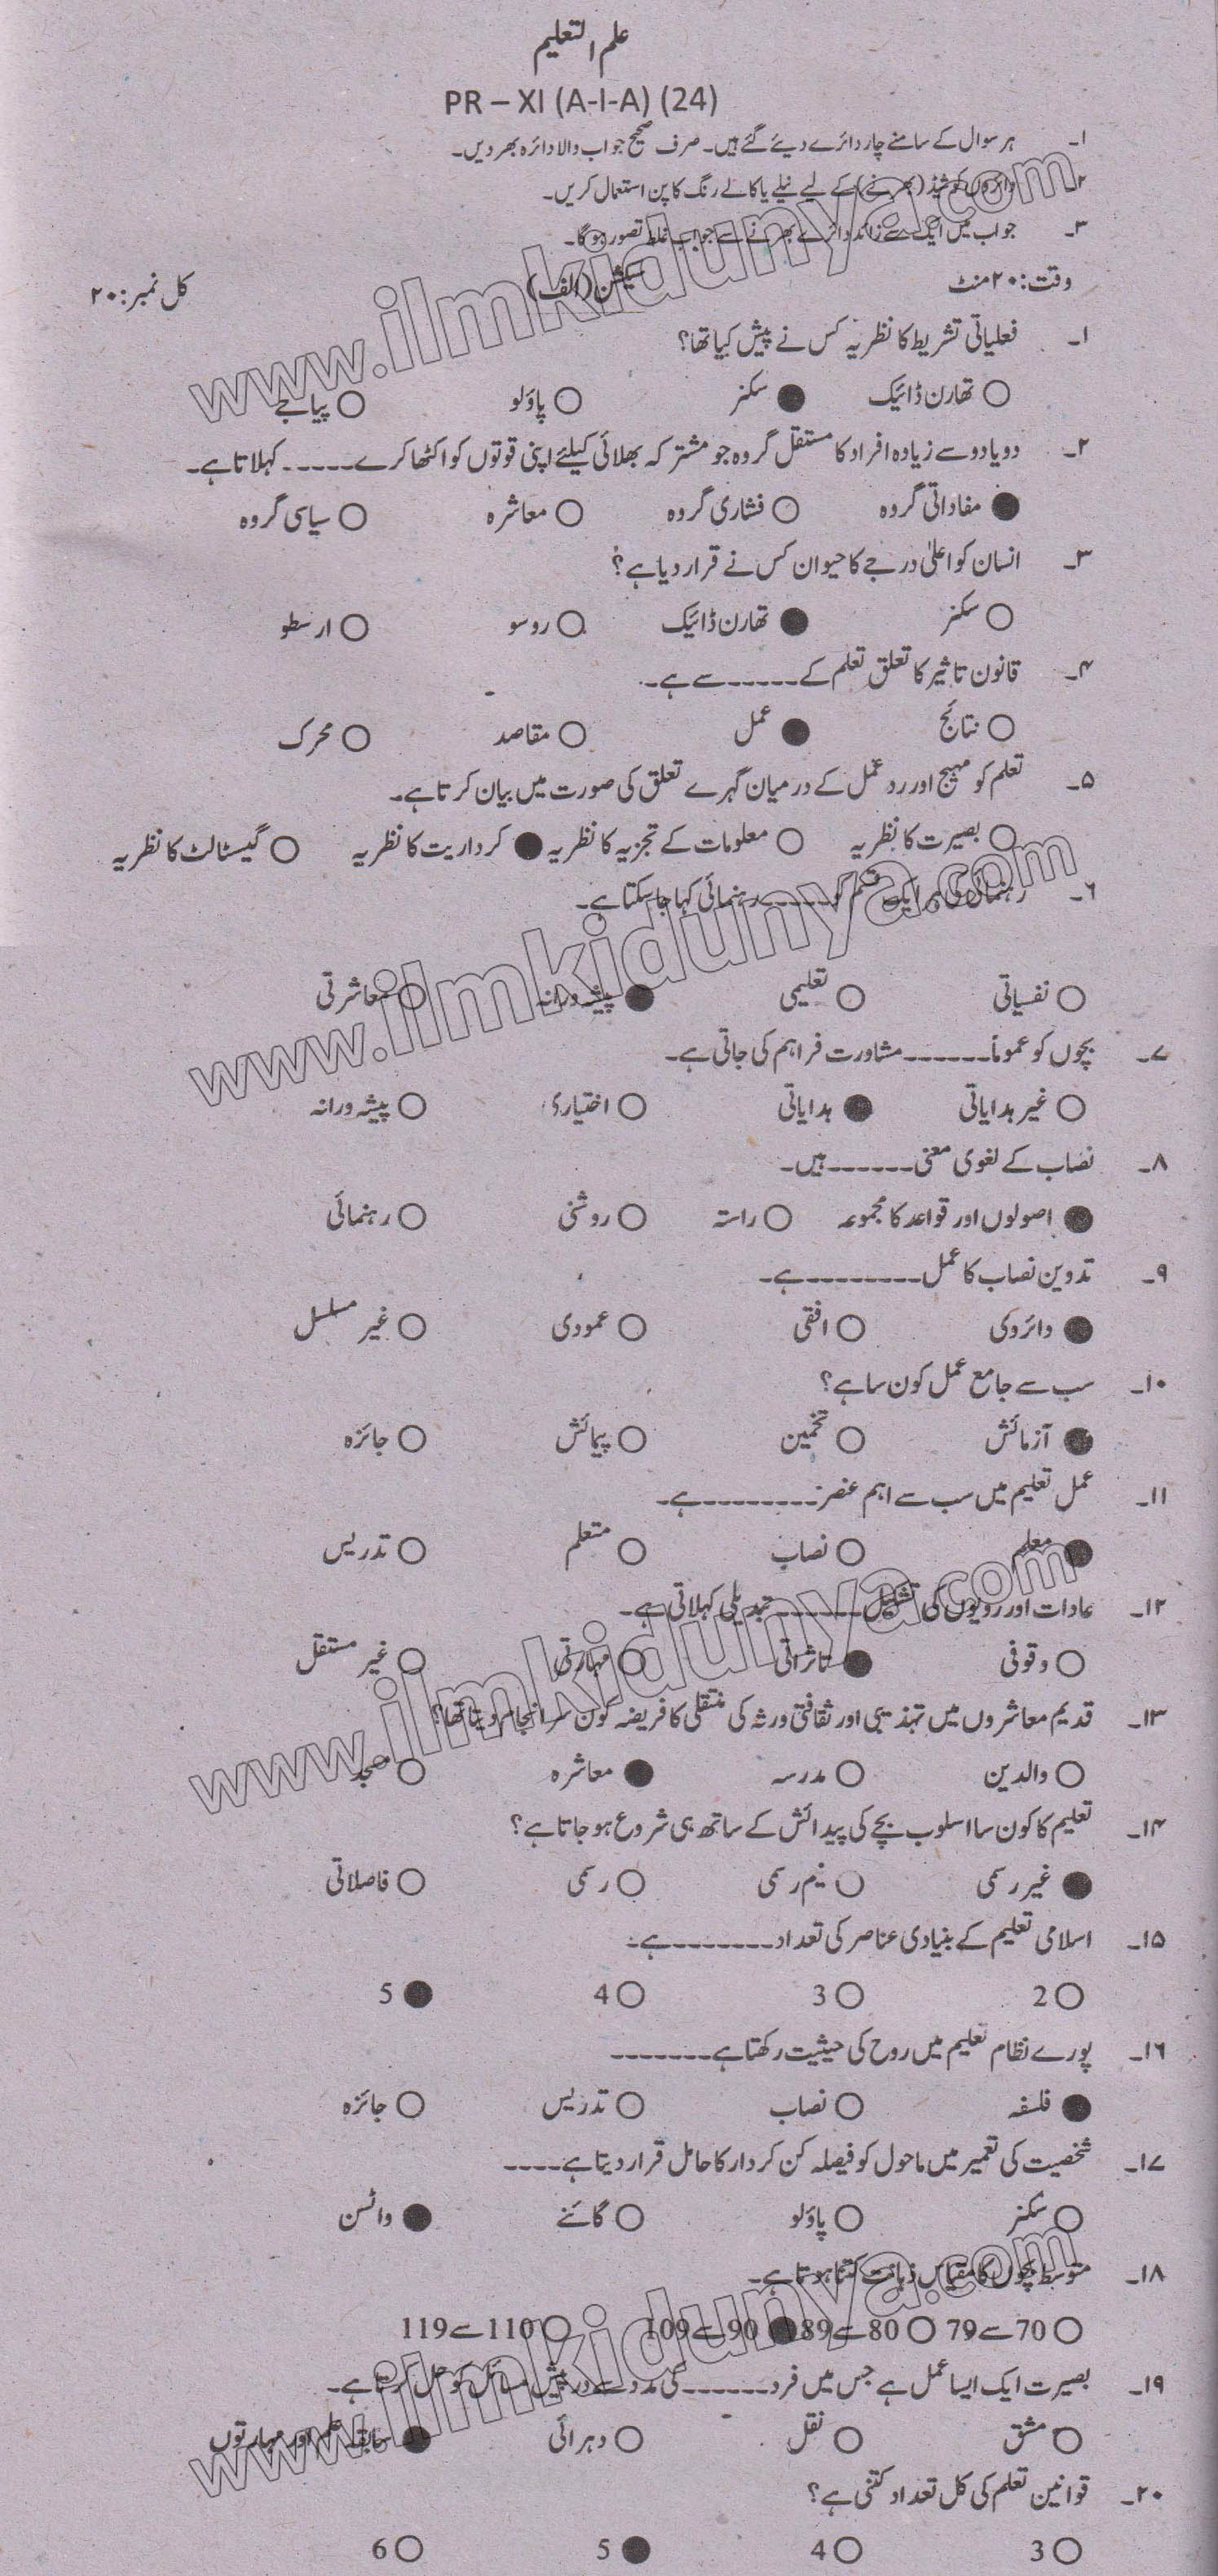 علم التعلیم
PR – XI (A-I-A) (24)
۱۔ ہر سوال کے سامنے چار دائرے دیئے گئے ہیں۔ صرف صحیح جواب والا دائرہ بھر دیں۔
۲۔ دائروں کو شیڈ (بھرنے) کے لیے نیلے یا کالے رنگ کا پن استعمال کریں۔
۳۔ جواب میں ایک سے زائد دائرے بھرنے سے جواب غلط تصور ہو گا۔
وقت: ۲۰ منٹ سیکشن (الف) کل نمبر: ۲۰
۱۔ فعلیاتی تشریط کا نظریہ کس نے پیش کیا تھا؟
○ تھارن ڈائیک ● سکنر ○ پاؤلو ○ پیاجے
۲۔ دو یا دو سے زیادہ افراد کا مستقل گروہ جو مشترکہ بھلائی کیلئے اپنی قوتوں کو اکٹھا کرے ----- کہلاتا ہے۔
● مفاداتی گروہ ○ فشاری گروہ ○ معاشرہ ○ سیاسی گروہ
۳۔ انسان کو اعلیٰ درجے کا حیوان کس نے قرار دیا ہے؟
○ سکنر ● تھارن ڈائیک ○ روسو ○ ارسطو
۴۔ قانون تاثیر کا تعلق تعلم کے ------ سے ہے۔
○ نتائج ● عمل ○ مقاصد ○ محرک
۵۔ تعلم کو مہیج اور رد عمل کے درمیان گہرے تعلق کی صورت میں بیان کرتا ہے۔
○ بصیرت کا نظریہ ○ معلومات کے تجزیہ کا نظریہ ● کرداریت کا نظریہ ○ گیسٹالٹ کا نظریہ
۶۔ رہنمائی کی ہر ایک قسم کو ------ رہنمائی کہا جا سکتا ہے۔
○ نفسیاتی ○ تعلیمی ● پیشہ ورانہ ○ معاشرتی
۷۔ بچوں کو عموماً ------ مشاورت فراہم کی جاتی ہے۔
○ غیر ہدایاتی ● ہدایاتی ○ اختیاری ○ پیشہ ورانہ
۸۔ نصاب کے لغوی معنی ------ ہیں۔
● اصولوں اور قواعد کا مجموعہ ○ راستہ ○ روشنی ○ رہنمائی
۹۔ تدوین نصاب کا عمل --------- ہے۔
● دائروی ○ افقی ○ عمودی ○ غیر مسلسل
۱۰۔ سب سے جامع عمل کون سا ہے؟
● آزمائش ○ تخمین ○ پیمائش ○ جائزہ
۱۱۔ عمل تعلیم میں سب سے اہم عنصر --------- ہے۔
● معلم ○ نصاب ○ متعلم ○ تدریس
۱۲۔ عادات اور رویوں کی تشکیل ------- تبدیلی کہلاتی ہے۔
○ وقوفی ● تاثراتی ○ مہارتی ○ غیر مستقل
۱۳۔ قدیم معاشروں میں تہذیبی اور ثقافتی ورثہ کی منتقلی کا فریضہ کون سر انجام دیتا تھا؟
○ والدین ○ مدرسہ ● معاشرہ ○ مسجد
۱۴۔ تعلیم کا کون سا اسلوب بچے کی پیدائش کے ساتھ ہی شروع ہو جاتا ہے؟
● غیر رسمی ○ نیم رسمی ○ رسمی ○ فاصلاتی
۱۵۔ اسلامی تعلیم کے بنیادی عناصر کی تعداد ------- ہے۔
○ 2 ○ 3 ○ 4 ● 5
۱۶۔ پورے نظام تعلیم میں روح کی حیثیت رکھتا ہے -------
● فلسفہ ○ نصاب ○ تدریس ○ جائزہ
۱۷۔ شخصیت کی تعمیر میں ماحول کو فیصلہ کن کردار کا حامل قرار دیتا ہے ----
○ سکنر ○ پاؤلو ○ گانئے ● واٹسن
۱۸۔ متوسط بچوں کا مقیاس ذہانت کتنا ہوتا ہے۔
○ 70 سے 79 ○ 80 سے 89 ● 90 سے 109 ○ 110 سے 119
۱۹۔ بصیرت ایک ایسا عمل ہے جس میں فرد ------ کی مدد سے درپیش مسائل کو حل کرتا ہے۔
○ مشق ○ نقل ○ دہرائی ● سابقہ علم اور مہارتوں
۲۰۔ قوانین تعلم کی کل تعداد کتنی ہے؟
○ 3 ○ 4 ● 5 ○ 6
www.ilmkidunya.com
www.ilmkidunya.com
www.ilmkidunya.com
www.ilmkidunya.com